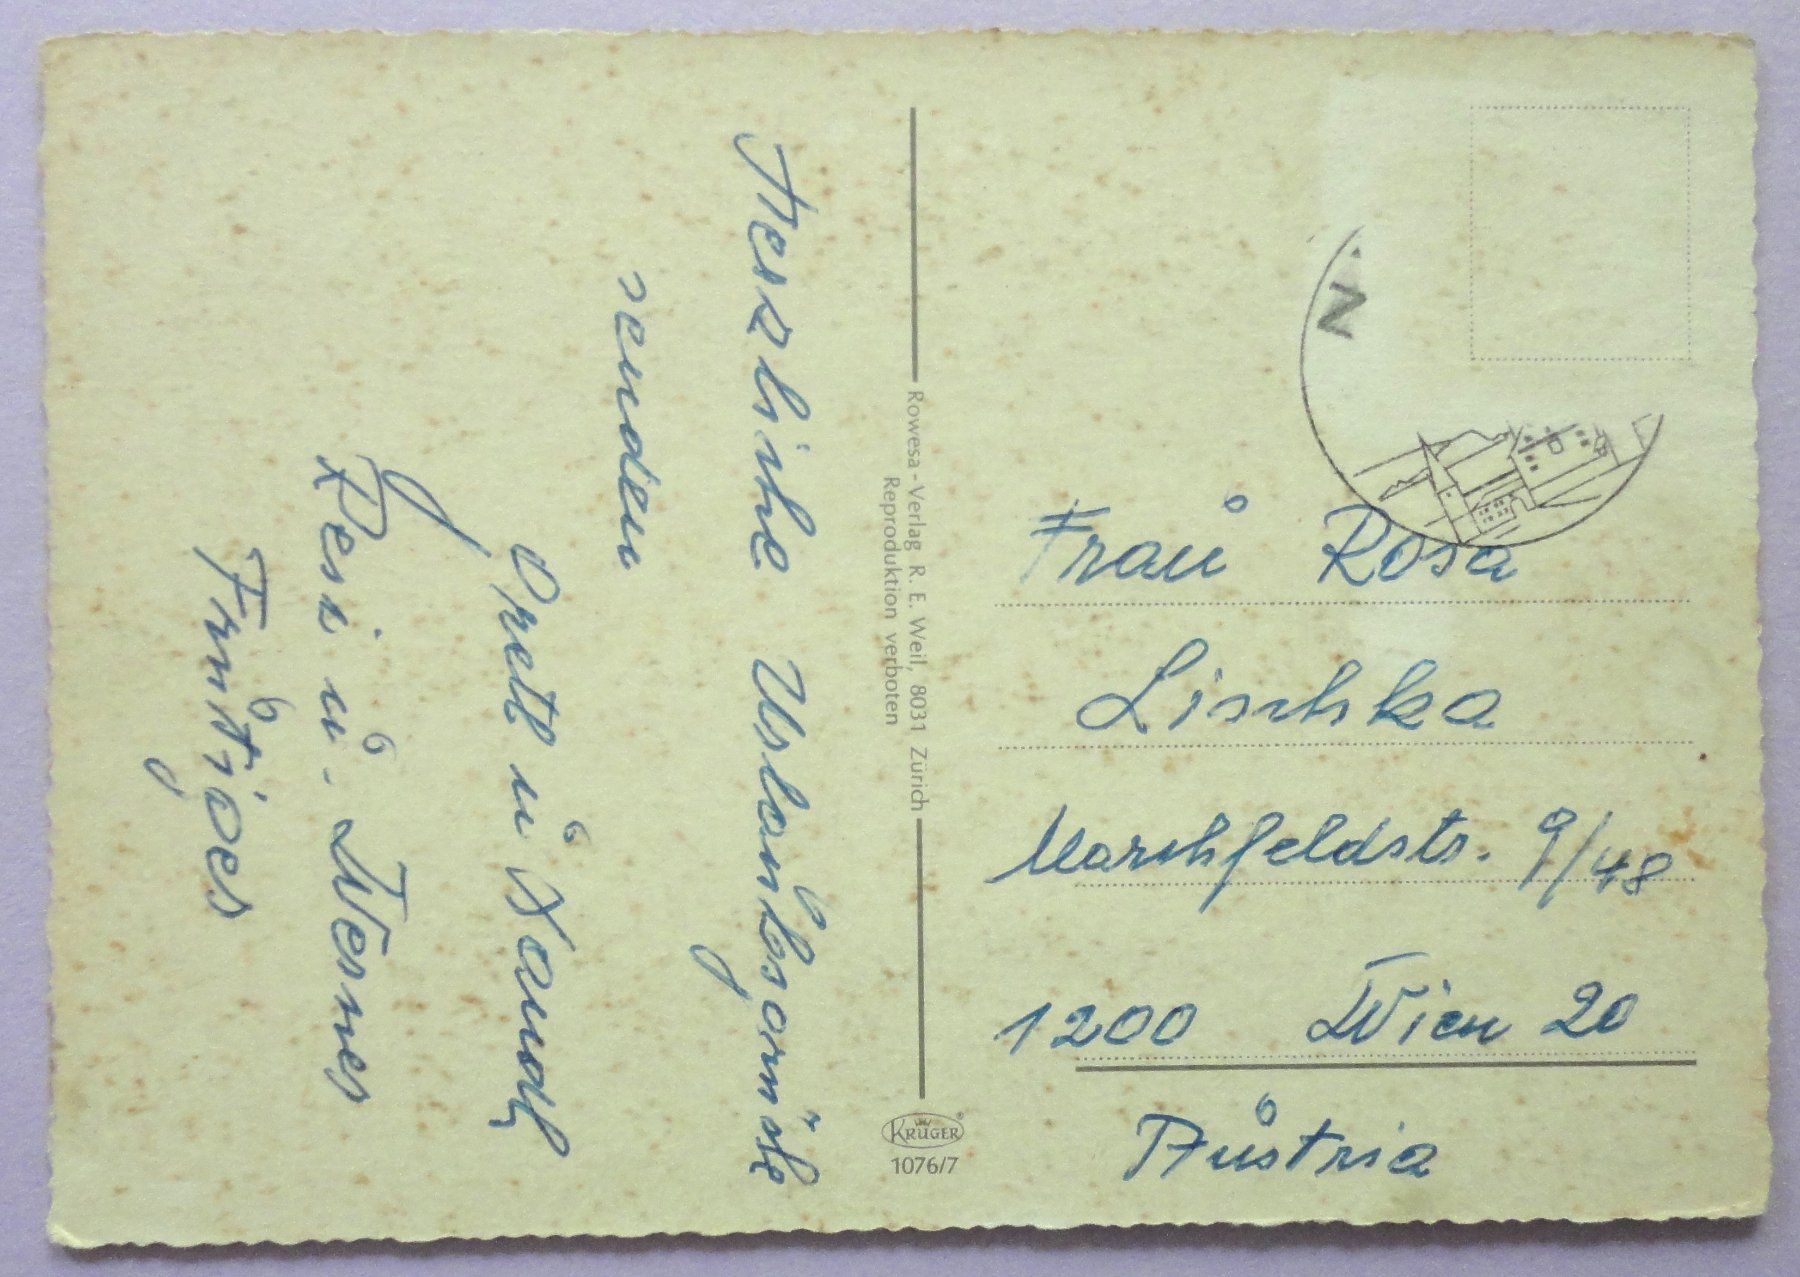 Herzliche Urlaubsgrüße
senden
Gretl u
Resi u. Werner
Rowesa - Verlag R. E. Weil, 8031 Zürich
Reproduktion verboten
KRÜGER
1076/7
N
Frau Rosa
Lischka
Marchfeldstr. 9/48
1200 Wien 20
Austria